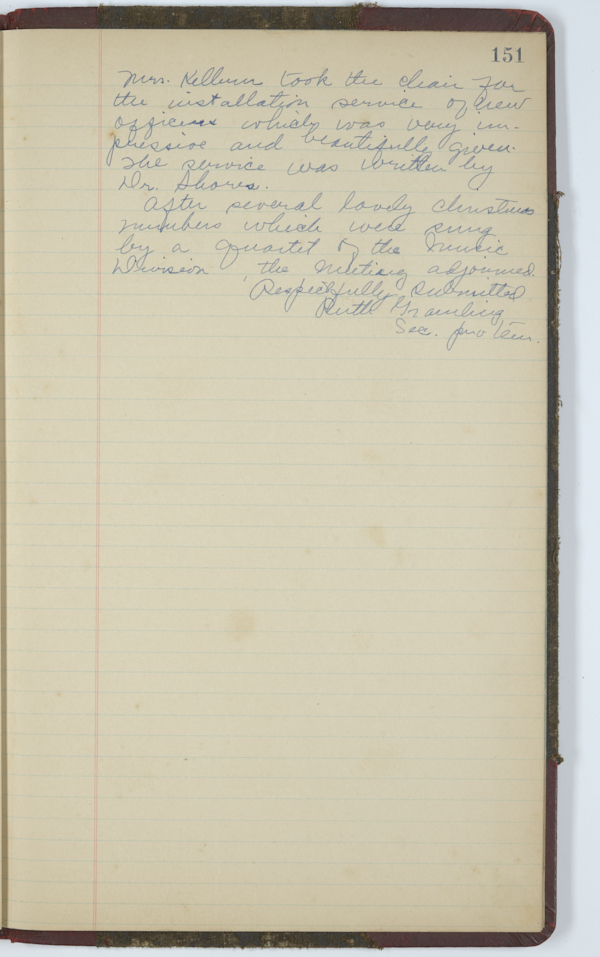 151
Mrs. Kellum took the chair for
the installation service of new
officers which was very im-
pressive and beautifully given.
The service was written by
Dr. Shores.
After several lovely Christmas
numbers which were sung
by a quartet of the Music
Division, the meeting adjourned.
Respectfully submitted
Ruth Grambling
Sec. pro tem.